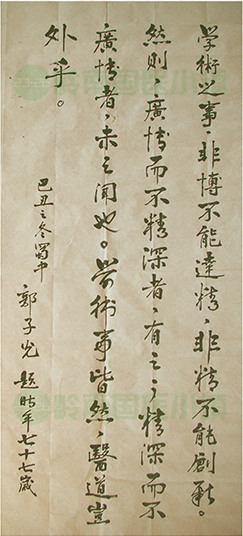 学術之事，非博不能達精，非精不能創新。
然则，廣博而不精深者，有之；精深而不
廣博者，未之聞也。學術事皆然，醫道豈
外乎。
己丑之冬蜀中
郭子光 題时年七十七歲